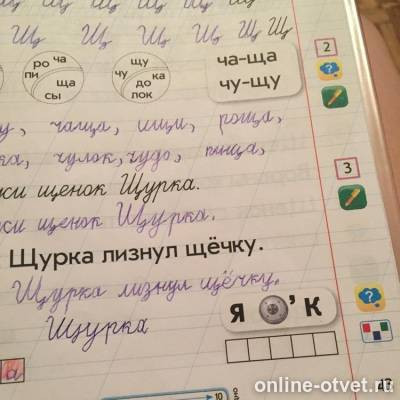 Щ Щ Щ Щ Щ Щ
2
ро ча
пи ща
сы
щу
чу ка
до
лок
ча-ща
чу-щу
чаща, ищи, роща,
чулок, чудо, пища,
3
щенок Щурка.
щенок Щурка.
Щурка лизнул щёчку.
Щурка лизнул щёчку.
Щурка
Я ' К
а
10
online-otvet.ru